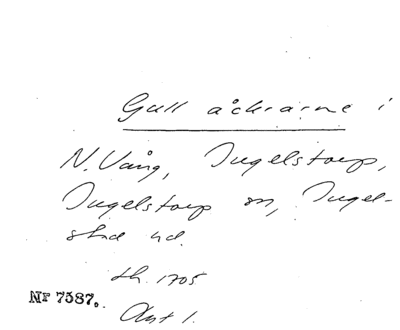 Gull åckrarne i
N. Vång, Ingelstorp,
Ingelstorp sn, Ingel-
stad hd.
Lh. 1705
Akt 1.
Nr 7587.